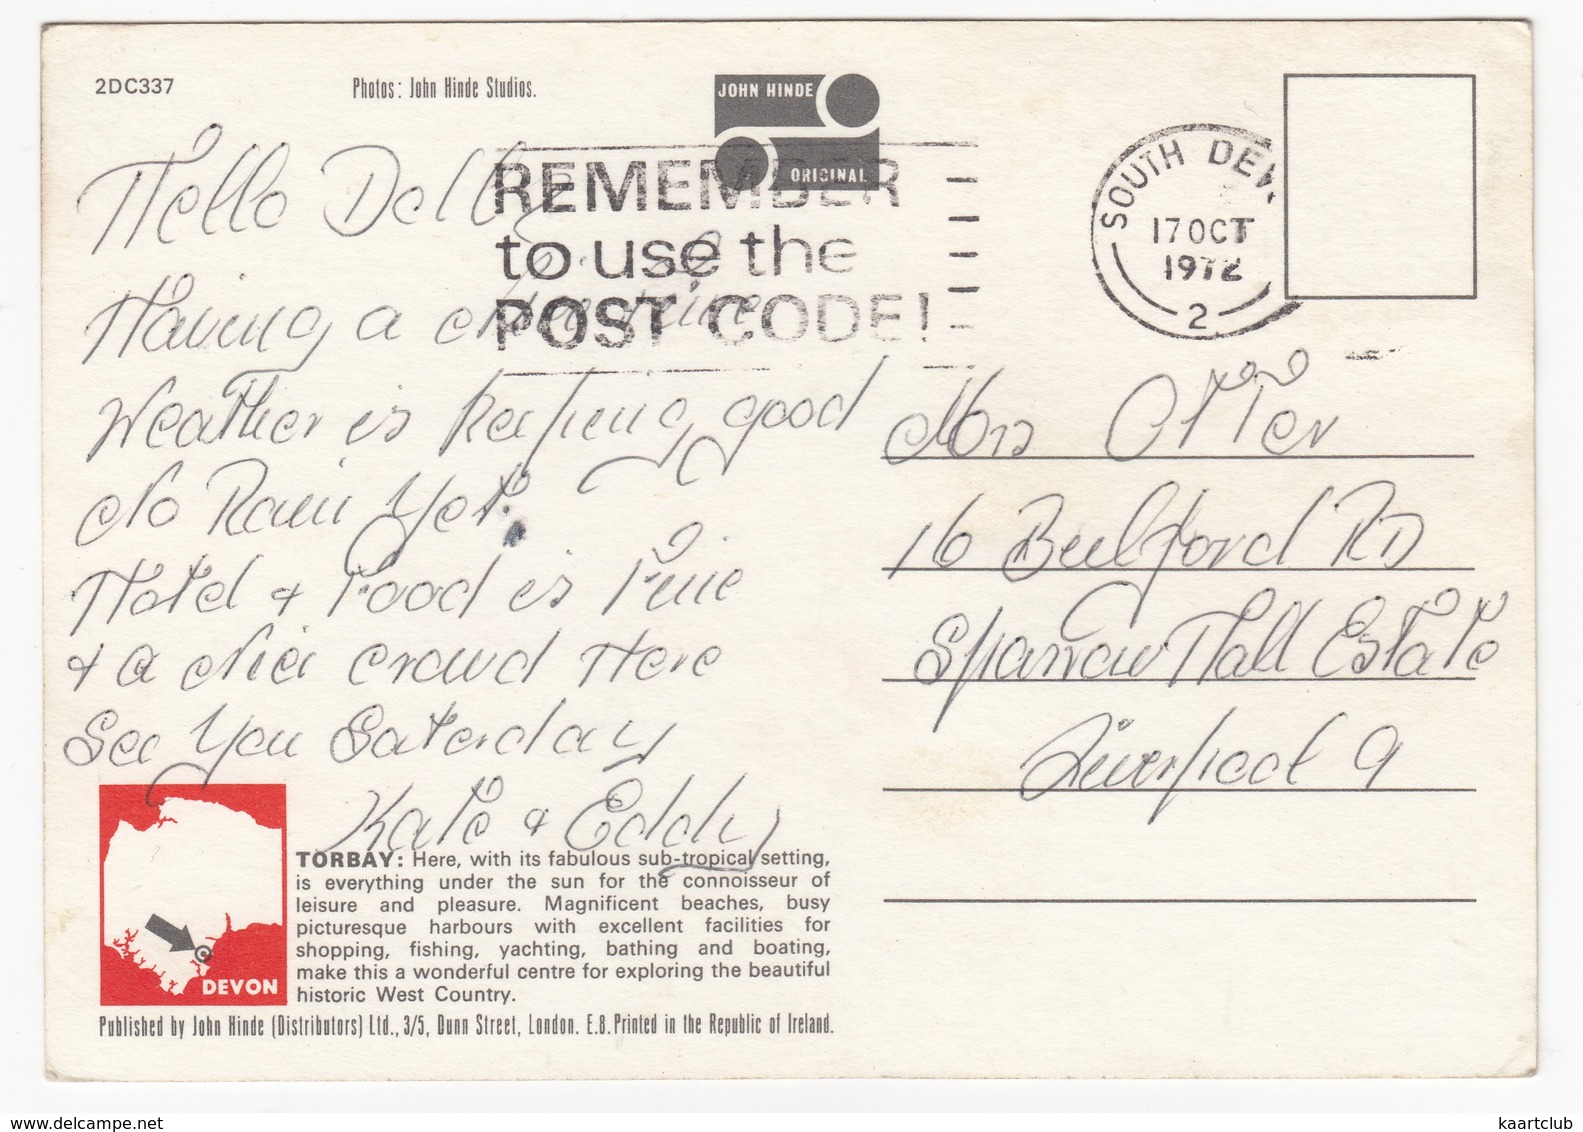 2DC337
Photos: John Hinde Studios.
JOHN HINDE
ORIGINAL
REMEMBER
to use the
POST CODE!
SOUTH DEV
17 OCT
1972
2
Hello Dolly
Having a time
Weather is keeping good
No Rain Yet.
Hotel & Food is Fine
& a Nice crowd Here
See You Saterday
Kate & Eddy
Mrs Otter
16 Bulford RD
Sparrow Hall Estate
Liverpool 9
TORBAY: Here, with its fabulous sub-tropical setting,
is everything under the sun for the connoisseur of
leisure and pleasure. Magnificent beaches, busy
picturesque harbours with excellent facilities for
shopping, fishing, yachting, bathing and boating,
make this a wonderful centre for exploring the beautiful
historic West Country.
DEVON
Published by John Hinde (Distributors) Ltd., 3/5, Dunn Street, London. E.8. Printed in the Republic of Ireland.
www.delcampe.net
kaartclub